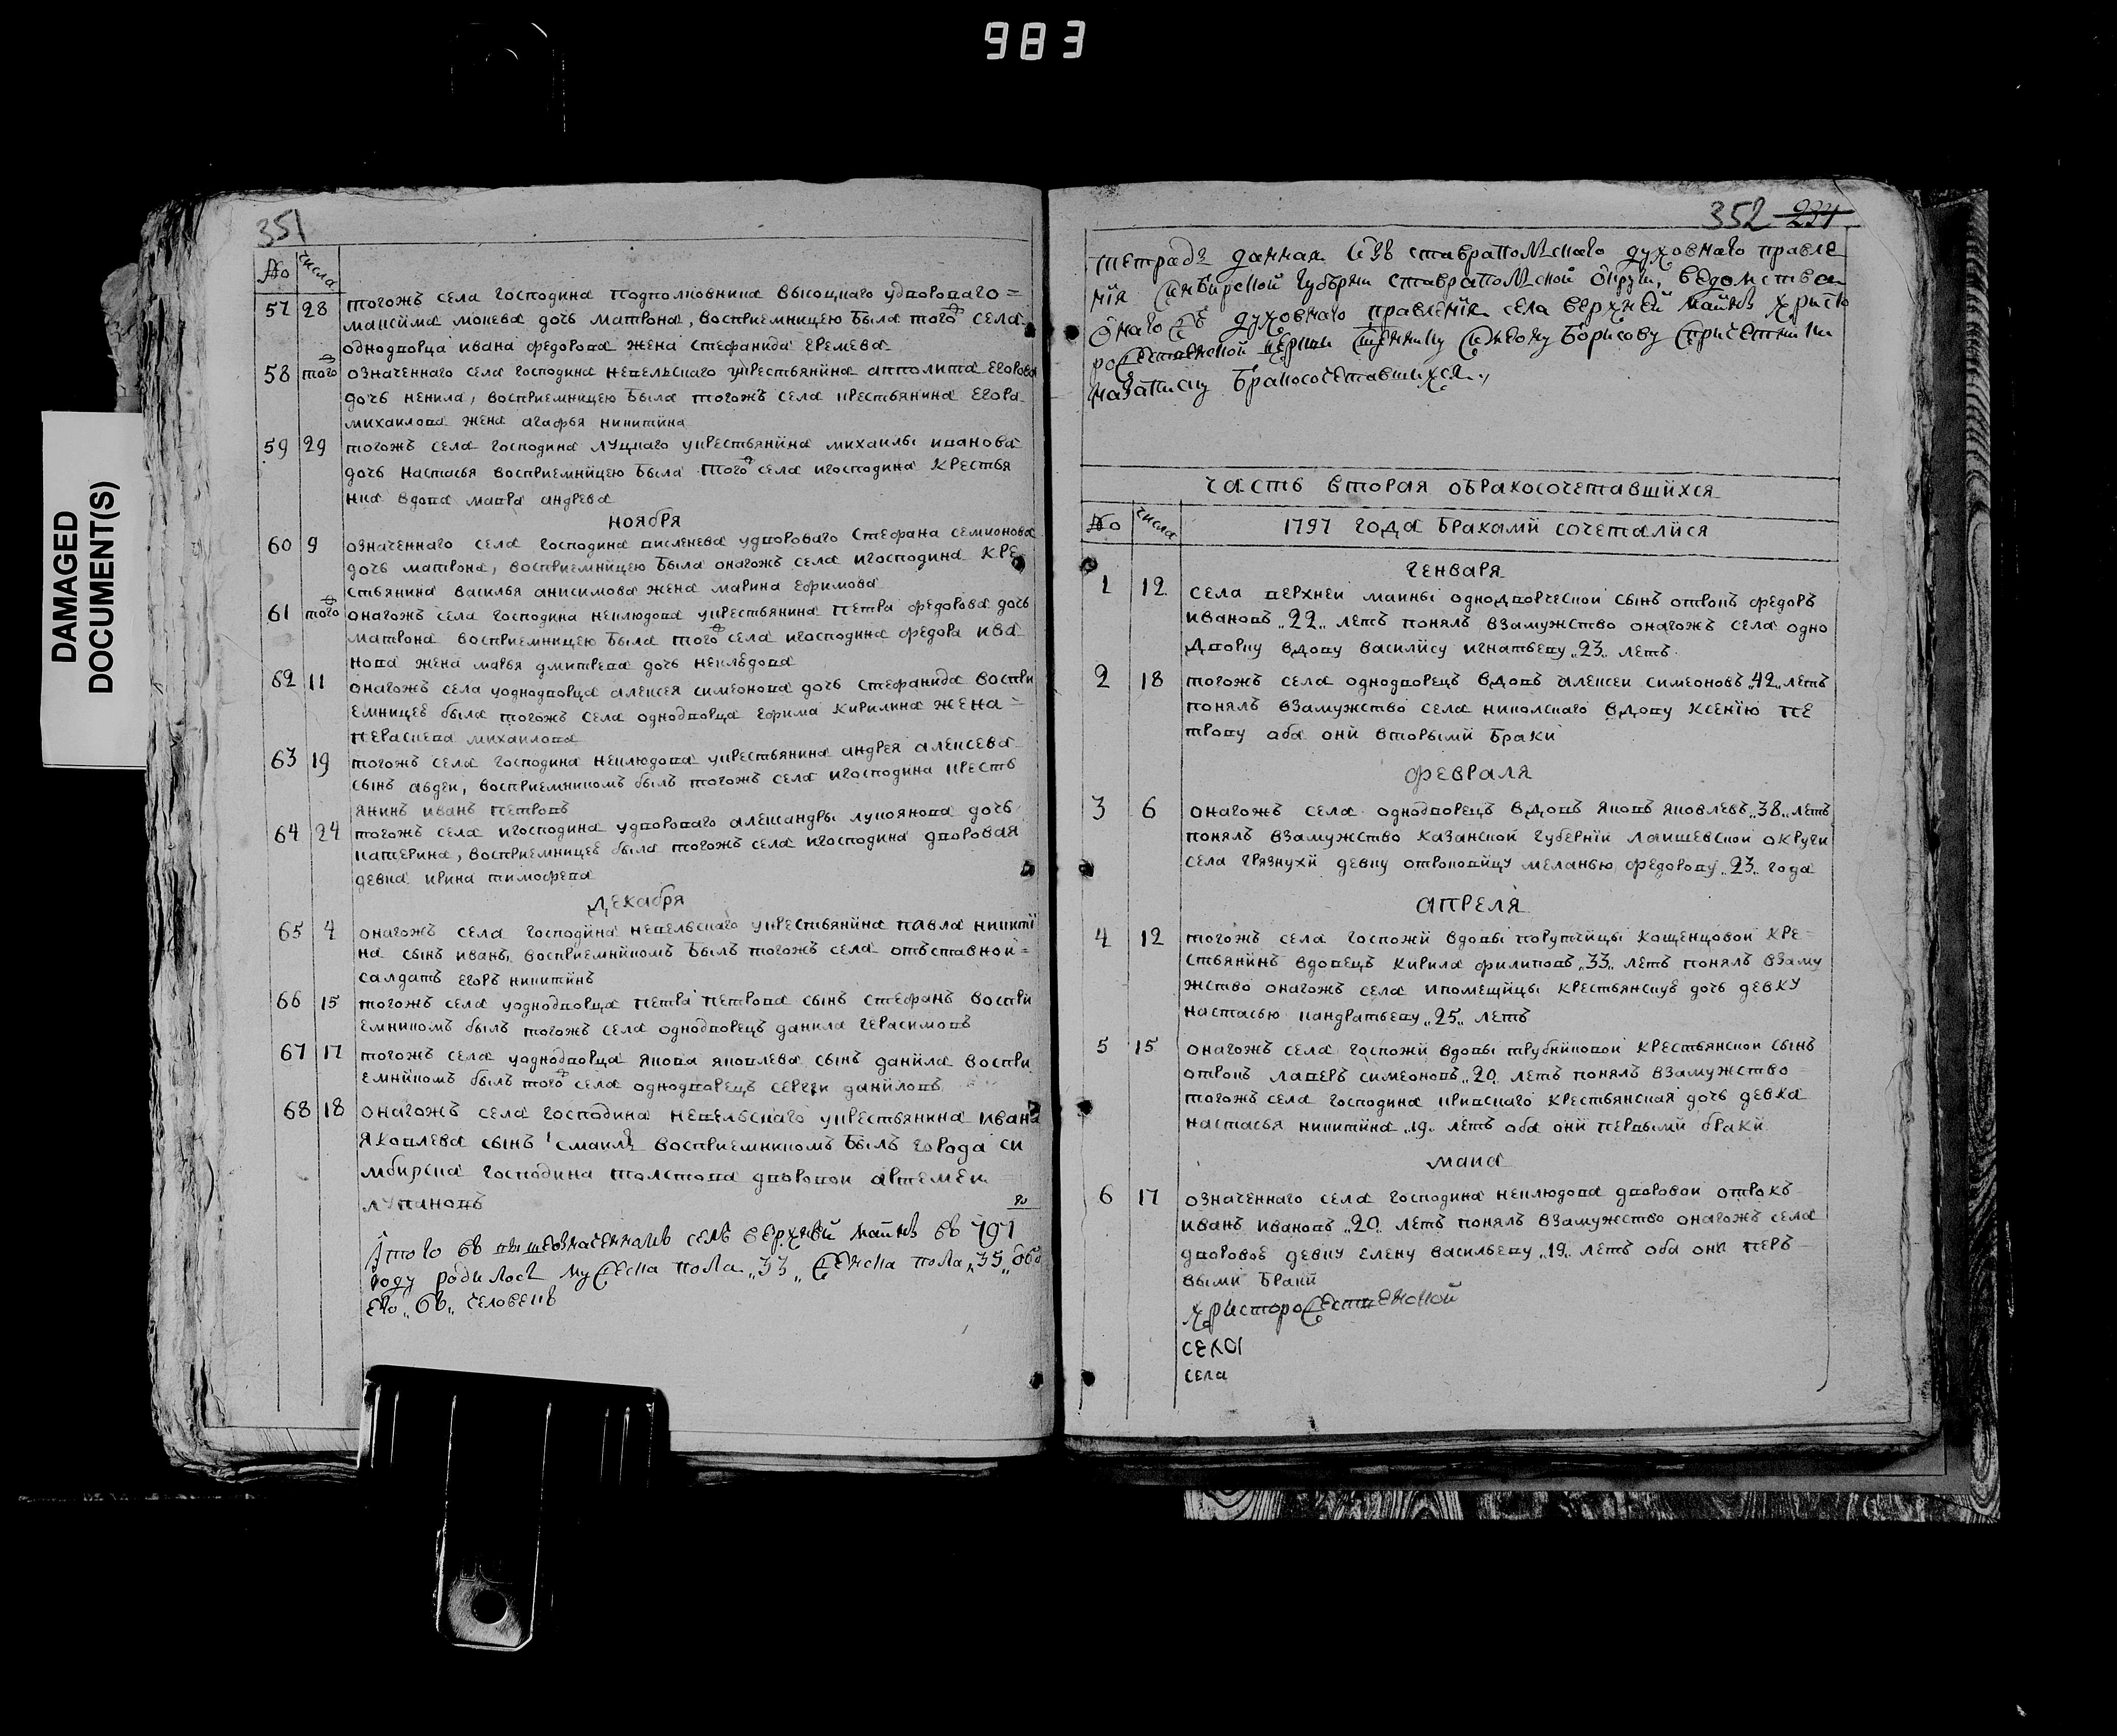 983
DAMAGED
DOCUMENT(S)
351
№ числа
57 28 тогожъ села господина подполковника высоцкаго удвороваго =
максима мокева дочь матрона, восприемницею была тогож села
однодворца ивана федорова жена стефанида еремева
58 тогож означеннаго села господина невельскаго укрестьянина апполита егорова
дочь ненила, восприемницею была тогожъ села крестьянина егора
михаилова жена агафья никитина
59 29 тогожъ села господина луцкаго укрестьянина михаилы иванова
дочь настасья восприемницею была тогож села игосподина крестья
нка вдова мавра андрева
ноября
60 9 означеннаго села господина удвороваго стефана семионова
дочь матрона, восприемницею была онагожъ села игосподина кре
стьянина василья анисимова жена марина ефимова
61 тогож онагожъ села господина неклюдова укрестьянина петра федорова дочь
матрона восприемницею была тогож села игосподина федора ива
нова жена марья дмитрева дочь неклюдова
62 11 онагожъ села уоднодворца алексея симеонова дочь стефанида воспри
емницею была тогожъ села однодворца ефима кирилина жена =
перасковя михаилова
63 19 тогожъ села господина неклюдова укрестьянина андрея алексева
сынъ авдеи, восприемникомъ былъ тогожъ села игосподина кресть
янинъ иванъ петровъ
64 24 тогожъ села игосподина удвороваго александры лукоянова дочь
катерина, восприемницею была тогожъ села игосподина дворовая
девка ирина тимофева
декабря
65 4 онагожъ села господина невельскаго укрестьянина павла никити
на сынъ иванъ, восприемникомъ былъ тогожъ села отъставной =
салдатъ егоръ никитинъ
66 15 тогожъ села уоднодворца петра петрова сынъ стефанъ воспри
емникомъ былъ тогожъ села однодворецъ данила герасимовъ
67 17 тогожъ села уоднодворца якова яковлева сынъ данила воспри
емникомъ былъ тогож села однодворецъ сергеи даниловъ
68 18 онагожъ села господина невельскаго укрестьянина ивана
яковлева сынъ восприемникомъ былъ города си
мбирска господина толстова дворовои артемеи
лупановъ
Итого въ вышеозначенномъ селѣ верхней майнѣ въ 797
году родилось мужеска пола „33„ женска пола „35„ обо
его „68„ человекъ
352 234
тетрадь данная изъ ставропольскаго духовнаго правле
нія синбирской губерни ставропольской округи, ведомствам
онаго жъ духовнаго правленія села верхней майнѣ христо
рожественской церкви священнику симеону борисову спричетники
назаписку бракосочетавшихся.,
часть вторая обракосочетавшихся
№ числа 1797 года браками сочеталися
генваря
1 12 села верхнеи маины однодворческой сынъ отрокъ федоръ
ивановъ „22„ летъ понялъ взамужство онагожъ села одно
дворку вдову василису игнатьеву „23„ летъ
2 18 тогожъ села однодворецъ вдовъ алексеи симеоновъ „42„ летъ
понялъ взамужство села николскаго вдову ксенію пе
трову оба они вторыми браки
февраля
3 6 онагожъ села однодворецъ вдовъ яковъ яковлевъ „38„ летъ
понялъ взамужство казанской губерніи лаишевской округи
села грязнухи девку отроковицу меланью федорову „23„ года
апреля
4 12 тогожъ села госпожи вдовы порутчицы кощенцовой кре=
стьянинъ вдовецъ кирила филиповъ „33„ летъ понялъ взаму
жство онагожъ села ипомещицы крестьянскую дочь девку
настасью кандратьеву „25„ летъ
5 15 онагожъ села госпожи вдовы трубниковой крестьянской сынъ
отрокъ лаверъ симеоновъ „20„ летъ понялъ взамужство
тогожъ села господина кривскаго крестьянская дочь девка
настасья никитина „19„ летъ оба они первыми браки
маиа
6 17 означеннаго села господина неклюдова дворовой отрокъ
иванъ ивановъ „20„ летъ понялъ взамужство онагожъ села
дворовое девку елену васильеву „19„ летъ оба они перъ
выми браки
христорожественской
села